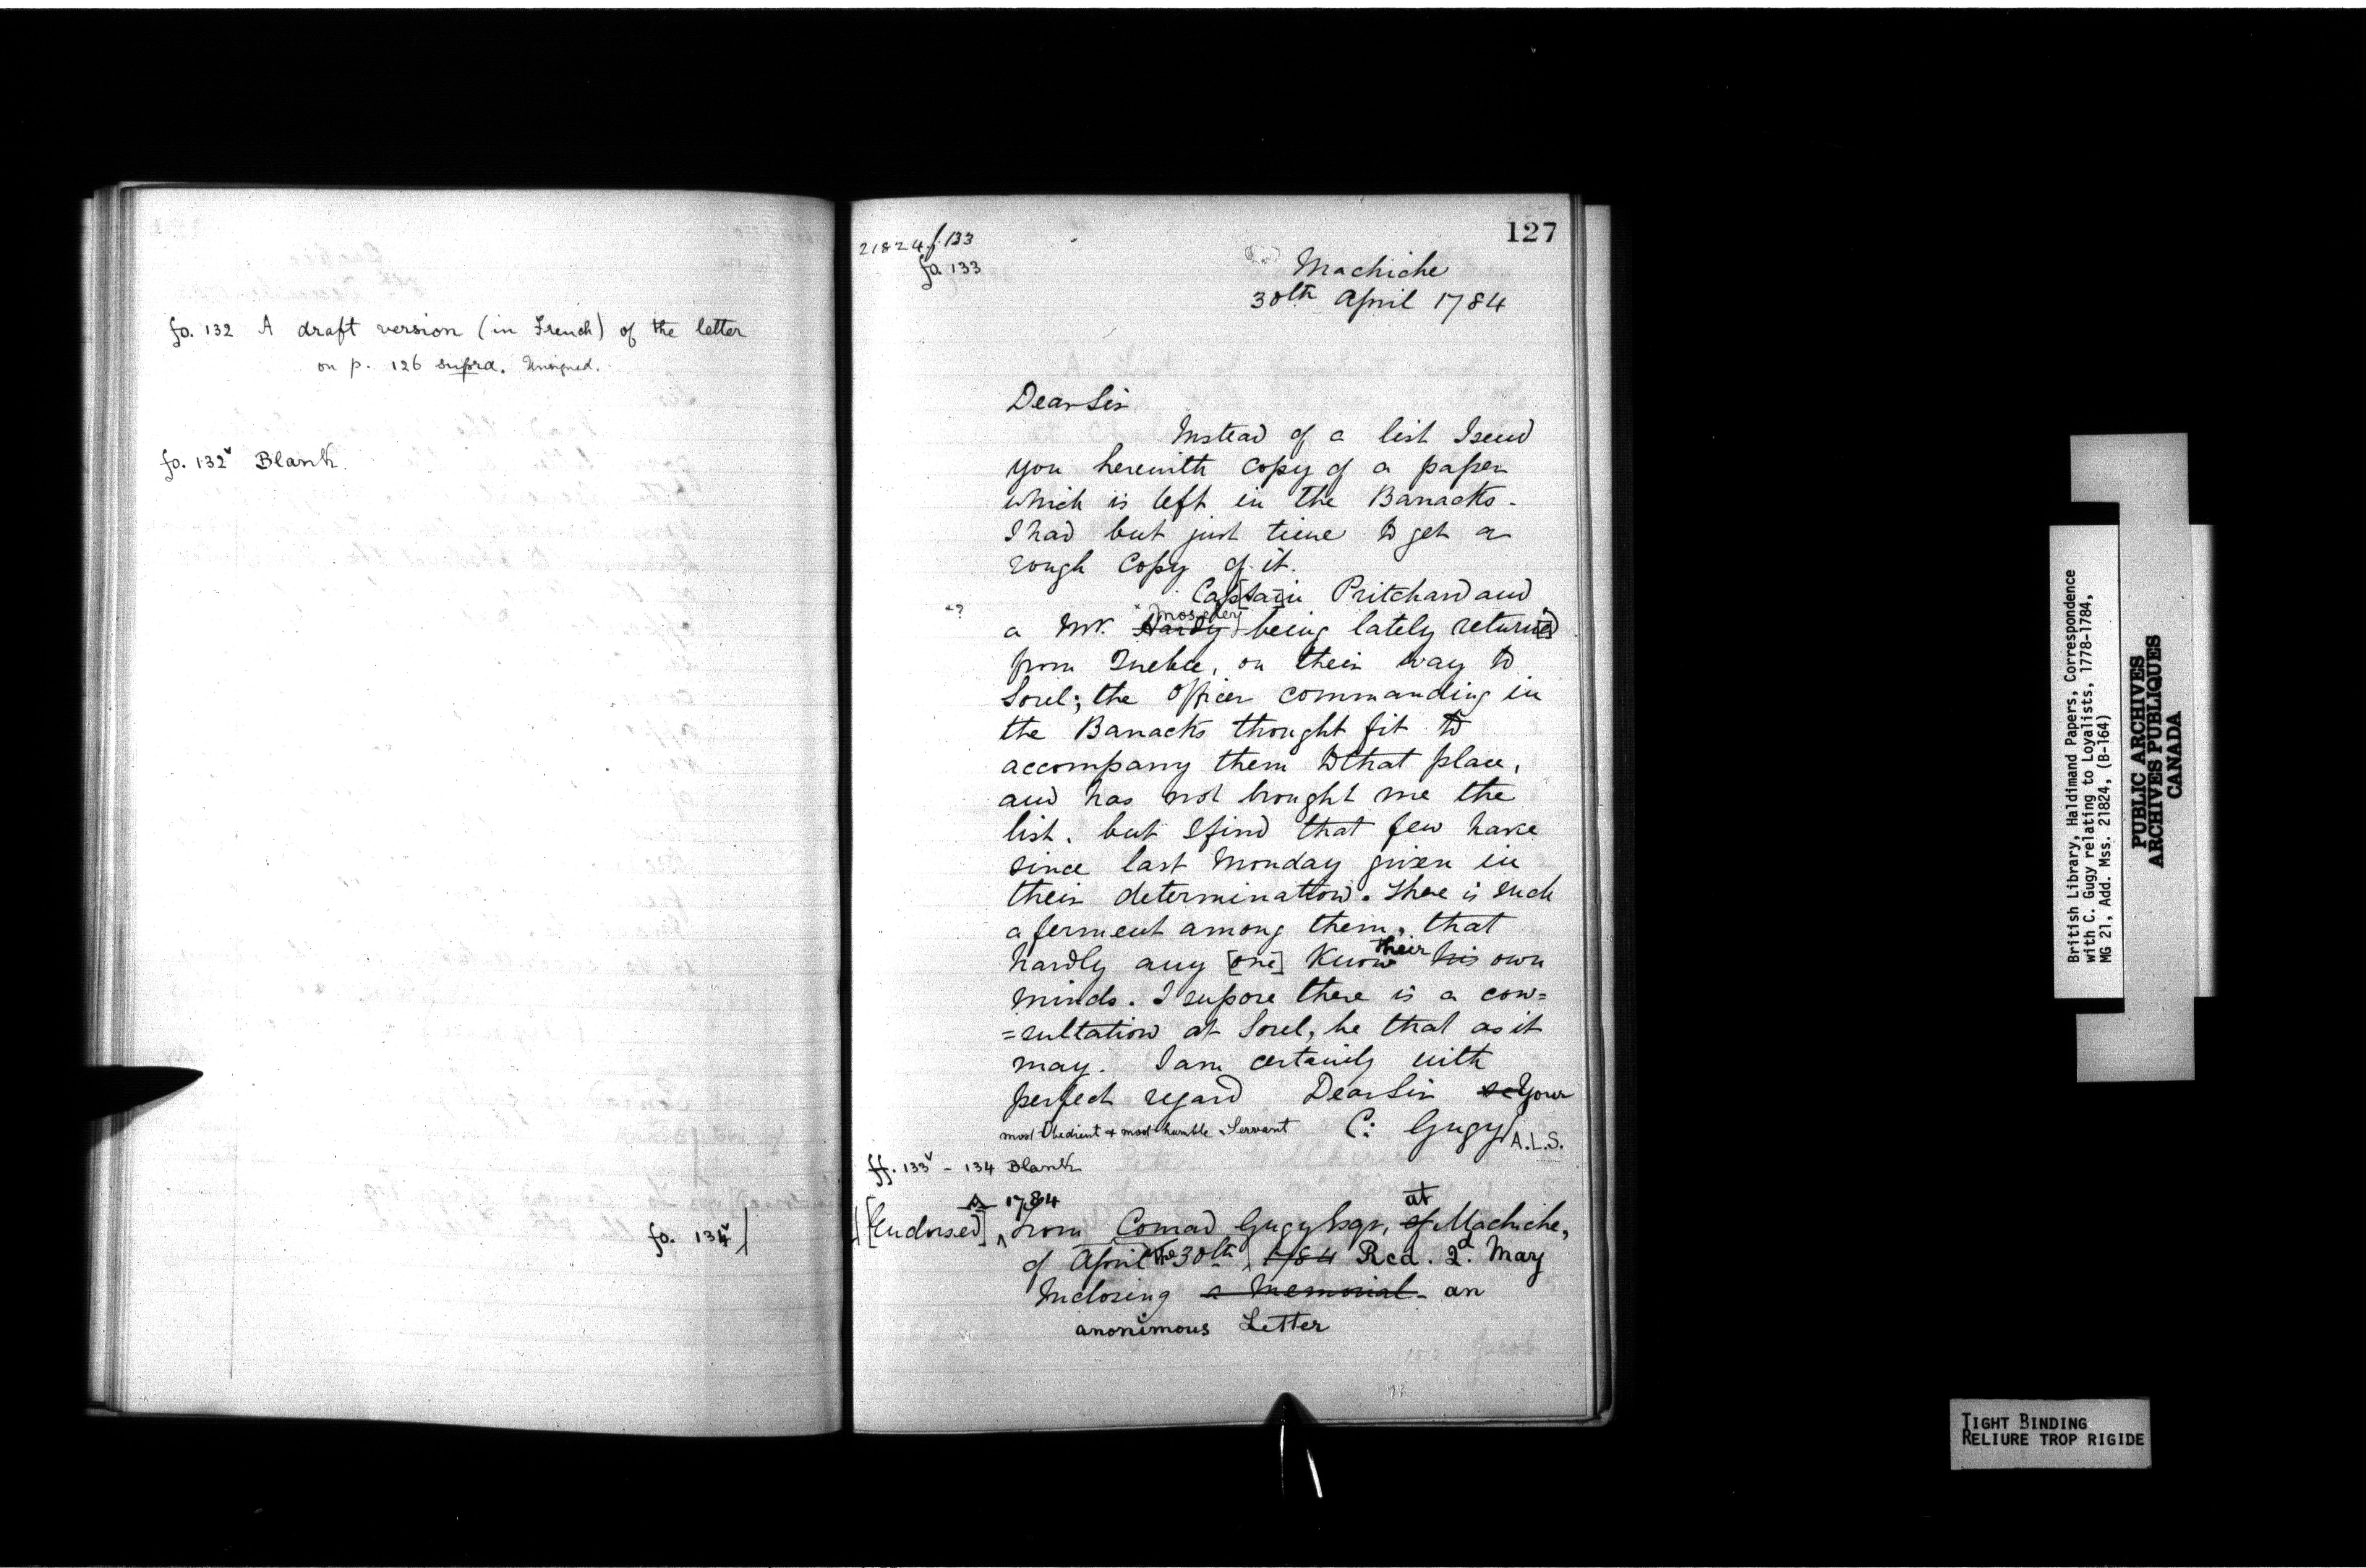 fo. 132 A draft version (in French) of the letter
on p. 126 supra. Unsigned.
fo. 132v Blank.
fo. 134v
127
21824 f. 133
fo. 133
Machiche
30th April 1784
Dear Sir
Instead of a list I send
you herewith copy of a paper
which is left in the Barracks.
I had but just time to get a
rough Copy of it.
Cap[tai]n Pritchard and
a Mr. Hardy being lately return[e]d
from Quebec, on their way to
Sorel; the Officer commanding in
the Barracks thought fit to
accompany them to that place,
and has not brought me the
list. but I find that few have
since last Monday given in
their determination. There is such
a ferment among them, that
hardly any [one] know their his own
minds. I supose there is a con=
=sultation at Sorel, be that as it
may. I am certainly with
perfect regard Dear Sir &c Your
most Obedient & most humble Servant C: Gugy A.L.S.
ff. 133v - 134 Blank
1784
[Endorsed] From Conrad Gugy Esqr, of at Machiche,
of April the 30th 1784 Rcd. 2d. May
Inclosing a Memorial - an
anonimous Letter
British Library, Haldimand Papers, Correspondence
with C. Gugy relating to Loyalists, 1778-1784,
MG 21, Add. Mss. 21824, (B-164)
PUBLIC ARCHIVES
ARCHIVES PUBLIQUES
CANADA
TIGHT BINDING
RELIURE TROP RIGIDE